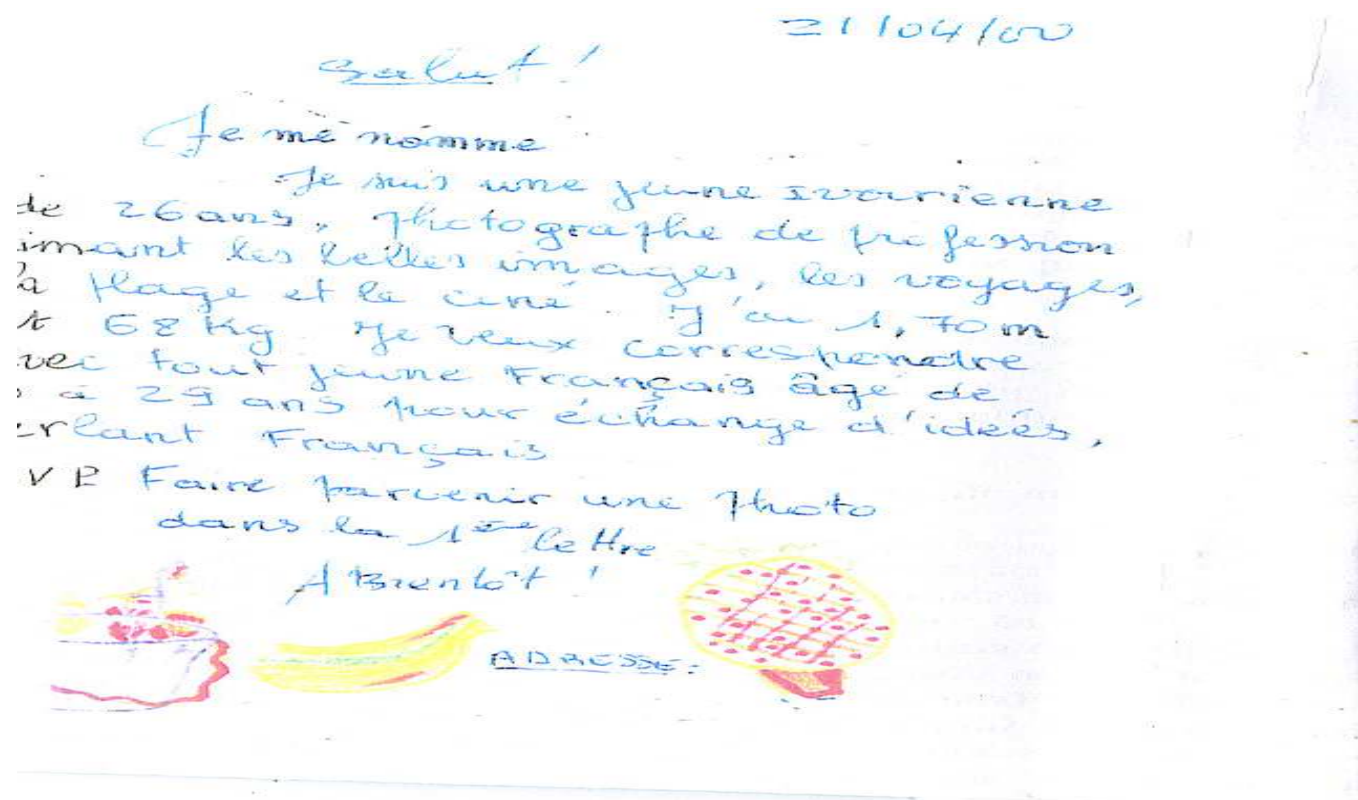 21/04/00
Salut !
Je me nomme
Je suis une jeune Ivoirienne
de 26 ans, photographe de profession
imant les belles images, les voyages,
a plage et le ciné. J'ai 1,70 m
t 68 Kg. Je veux correspondre
vec tout jeune Français âgé de
à 29 ans pour échange d'idées,
rlant Français
VP Faire parvenir une photo
dans la 1ère lettre
A Bientôt !
ADRESSE :